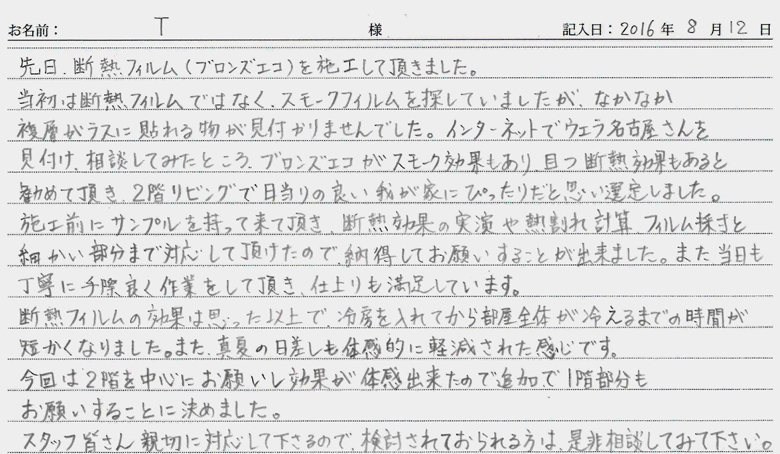 お名前： T 様 記入日：2016年 8月12日
先日、断熱フィルム(ブロンズエコ)を施工して頂きました。
当初は断熱フィルムではなく、スモークフィルムを探していましたが、なかなか
複層ガラスに貼れる物が見付かりませんでした。インターネットでウェラ名古屋さんを
見付け、相談してみたところ、ブロンズエコがスモーク効果もあり、且つ断熱効果もあると
勧めて頂き、2階リビングで日当りの良い我が家にぴったりだと思い選定しました。
施工前にサンプルを持って来て頂き、断熱効果の実演や熱割れ計算 フィルム採寸と
細かい部分まで対応して頂けたので、納得してお願いすることが出来ました。また当日も
丁寧に手際良く作業をして頂き、仕上りも満足しています。
断熱フィルムの効果は思った以上で、冷房を入れてから部屋全体が冷えるまでの時間が
短かくなりました。また、真夏の日差しも体感的に軽減された感じです。
今回は2階を中心にお願いし効果が体感出来たので追加で1階部分も
お願いすることに決めました。
スタッフ皆さん親切に対応して下さるので、検討されておられる方は、是非相談してみて下さい。